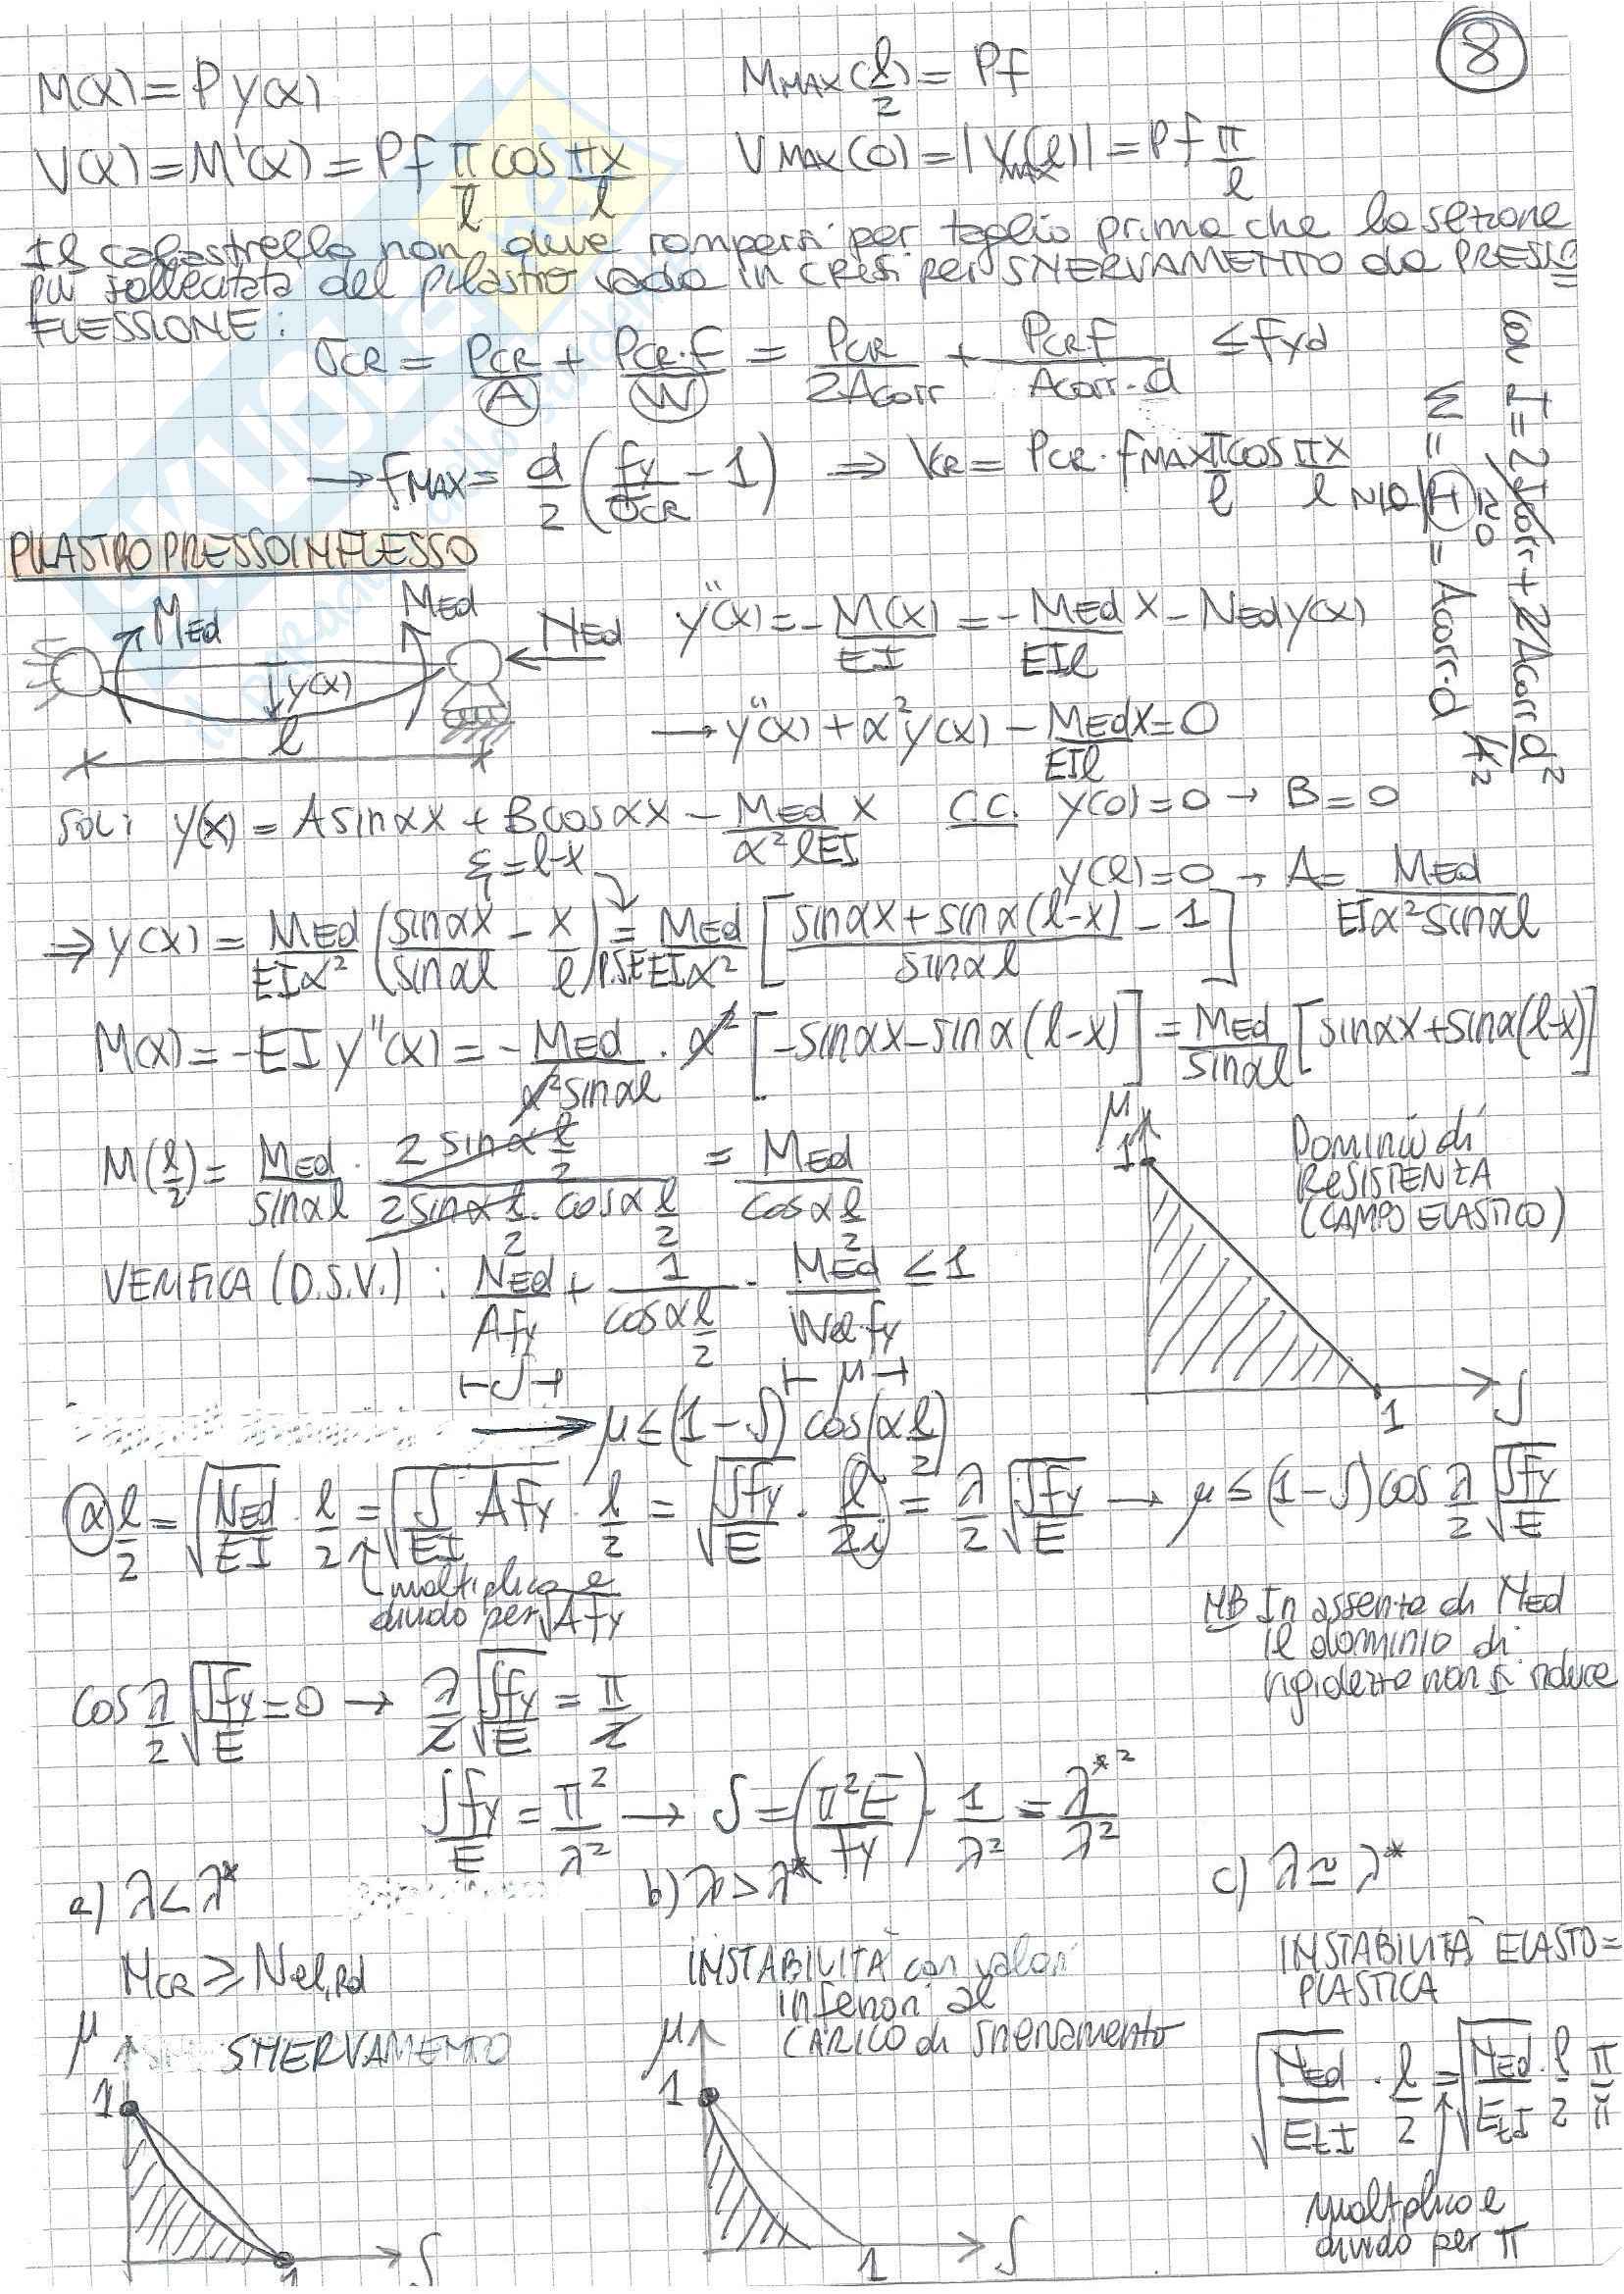 8
M(x) = P y(x)     M_MAX(l/2) = Pf
V(x) = M'(x) = Pf π/l cos πx/l     V_MAX(0) = |V_MAX(l)| = Pf π/l
Il calastrello non deve rompersi per taglio prima che la sezione
più sollecitata del pilastro vada in crisi per SNERVAMENTO da PRESSO=
FLESSIONE:
σ_CR = P_CR/A + P_CR·f/W = P_CR/2A_corr + P_CR f/A_corr·d ≤ f_yd
→ f_MAX = d/2 (f_y/σ_CR - 1) ⇒ V_CR = P_CR · f_MAX π/l cos πx/l
con I = 2I_corr + 2A_corr d²/4
≃0
W = = A_corr·d
PILASTRO PRESSOINFLESSO
M_Ed     M_Ed     N_Ed
y(x)
l
y''(x) = - M(x)/EI = - M_Ed/EIl x - N_Ed y(x)
→ y''(x) + α² y(x) - M_Ed x/EIl = 0
sol: y(x) = A sin αx + B cos αx - M_Ed/α²lEI x     C.C. y(0) = 0 → B = 0
ξ = l-x
y(l) = 0 → A = M_Ed/EIα² sin αl
⇒ y(x) = M_Ed/EIα² (sin αx/sin αl - x/l) =P.S.E. M_Ed/EIα² [sin αx + sin α(l-x)/sin αl - 1]
M(x) = -EI y''(x) = - M_Ed/α² sin αl · α² [-sin αx - sin α(l-x)] = M_Ed/sin αl [sin αx + sin α(l-x)]
M(l/2) = M_Ed/sin αl · 2 sin α l/2 / 2 sin α l/2 · cos α l/2 = M_Ed/cos α l/2
μ
1
Dominio di
RESISTENZA
(CAMPO ELASTICO)
1     ʃ
VERIFICA (D.S.V.): N_Ed/A f_y + 1/cos α l/2 · M_Ed/W_el f_y ≤ 1
⊢ʃ⊣     ⊢μ⊣
→ μ ≤ (1-ʃ) cos(α l/2)
α l/2 = √(N_Ed/EI) · l/2 = √(ʃ/EI A f_y) · l/2 = √(ʃf_y/E) · l/2i = λ/2 √(ʃf_y/E) → μ ≤ (1-ʃ) cos λ/2 √(ʃf_y/E)
moltiplico e
divido per √A f_y
NB In assenza di M_Ed
il dominio di
rigidezza non si riduce
cos λ/2 √(ʃf_y/E) = 0 → λ/2 √(ʃf_y/E) = π/2
ʃf_y/E = π²/λ² → ʃ = (π²E/f_y) · 1/λ² = λ*²/λ²
a) λ < λ*     b) λ > λ*     c) λ ≃ λ*
N_CR ≥ N_el,Rd
SNERVAMENTO
μ
1
1     ʃ
INSTABILITÀ con valori
inferiori al
CARICO di snervamento
μ
1
1     ʃ
INSTABILITÀ ELASTO=
PLASTICA
√(N_Ed/E_tI) · l/2 = √(N_Ed/E_tI) · l/2 π/π
moltiplico e
divido per π